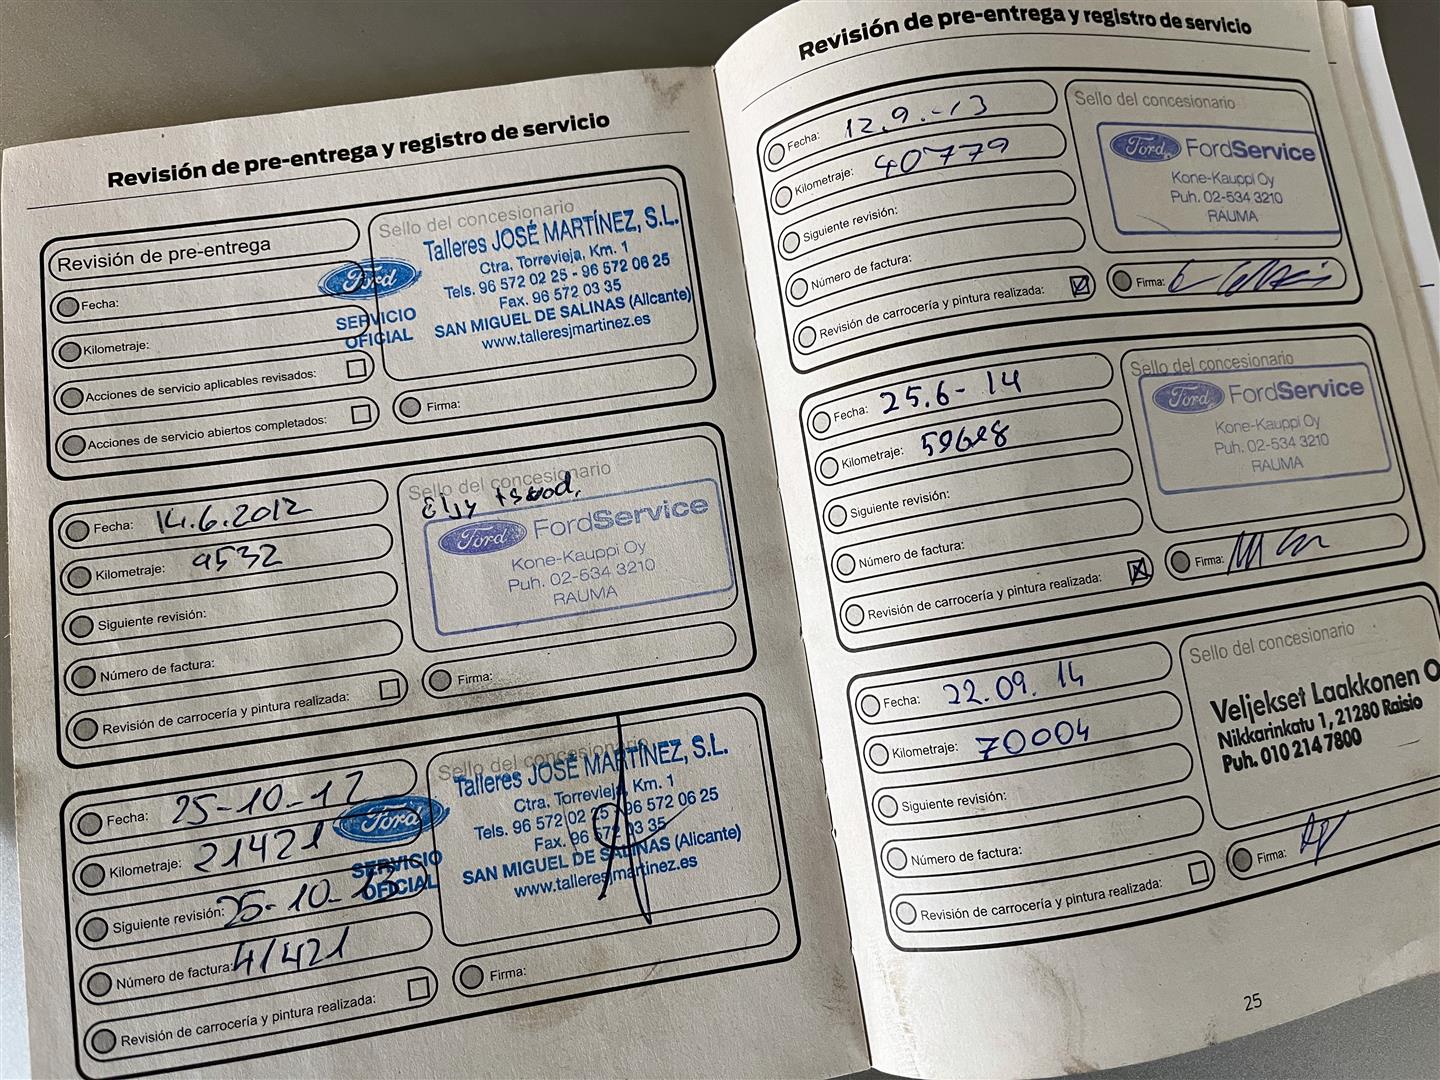 Revisión de pre-entrega y registro de servicio
Revisión de pre-entrega
Fecha:
Kilometraje:
Acciones de servicio aplicables revisados:
Acciones de servicio abiertos completados:
Sello del concesionario
Ford
SERVICIO
OFICIAL
Talleres JOSÉ MARTÍNEZ, S.L.
Ctra. Torrevieja, Km. 1
Tels. 96 572 02 25 - 96 572 06 25
Fax. 96 572 03 35
SAN MIGUEL DE SALINAS (Alicante)
www.talleresjmartinez.es
Firma:
Fecha: 14.6.2012
Kilometraje: 9532
Siguiente revisión:
Número de factura:
Revisión de carrocería y pintura realizada:
Sello del concesionario
Ford FordService
Kone-Kauppi Oy
Puh. 02-534 3210
RAUMA
Firma:
Fecha: 25-10-12
Kilometraje: 21421
Siguiente revisión: 25-10-13
Número de factura: 41421
Revisión de carrocería y pintura realizada:
Sello del concesionario
Ford
SERVICIO
OFICIAL
Talleres JOSÉ MARTÍNEZ, S.L.
Ctra. Torrevieja, Km. 1
Tels. 96 572 02 25 - 96 572 06 25
Fax. 96 572 03 35
SAN MIGUEL DE SALINAS (Alicante)
www.talleresjmartinez.es
Firma:
Revisión de pre-entrega y registro de servicio
Fecha: 12.9.-13
Kilometraje: 40779
Siguiente revisión:
Número de factura:
Revisión de carrocería y pintura realizada:
Sello del concesionario
Ford FordService
Kone-Kauppi Oy
Puh. 02-534 3210
RAUMA
Firma:
Fecha: 25.6-14
Kilometraje:
Siguiente revisión:
Número de factura:
Revisión de carrocería y pintura realizada:
Sello del concesionario
Ford FordService
Kone-Kauppi Oy
Puh. 02-534 3210
RAUMA
Firma:
Fecha: 22.09.14
Kilometraje: 70004
Siguiente revisión:
Número de factura:
Revisión de carrocería y pintura realizada:
Sello del concesionario
Veljekset Laakkonen O
Nikkarinkatu 1, 21280 Raisio
Puh. 010 214 7800
Firma:
25